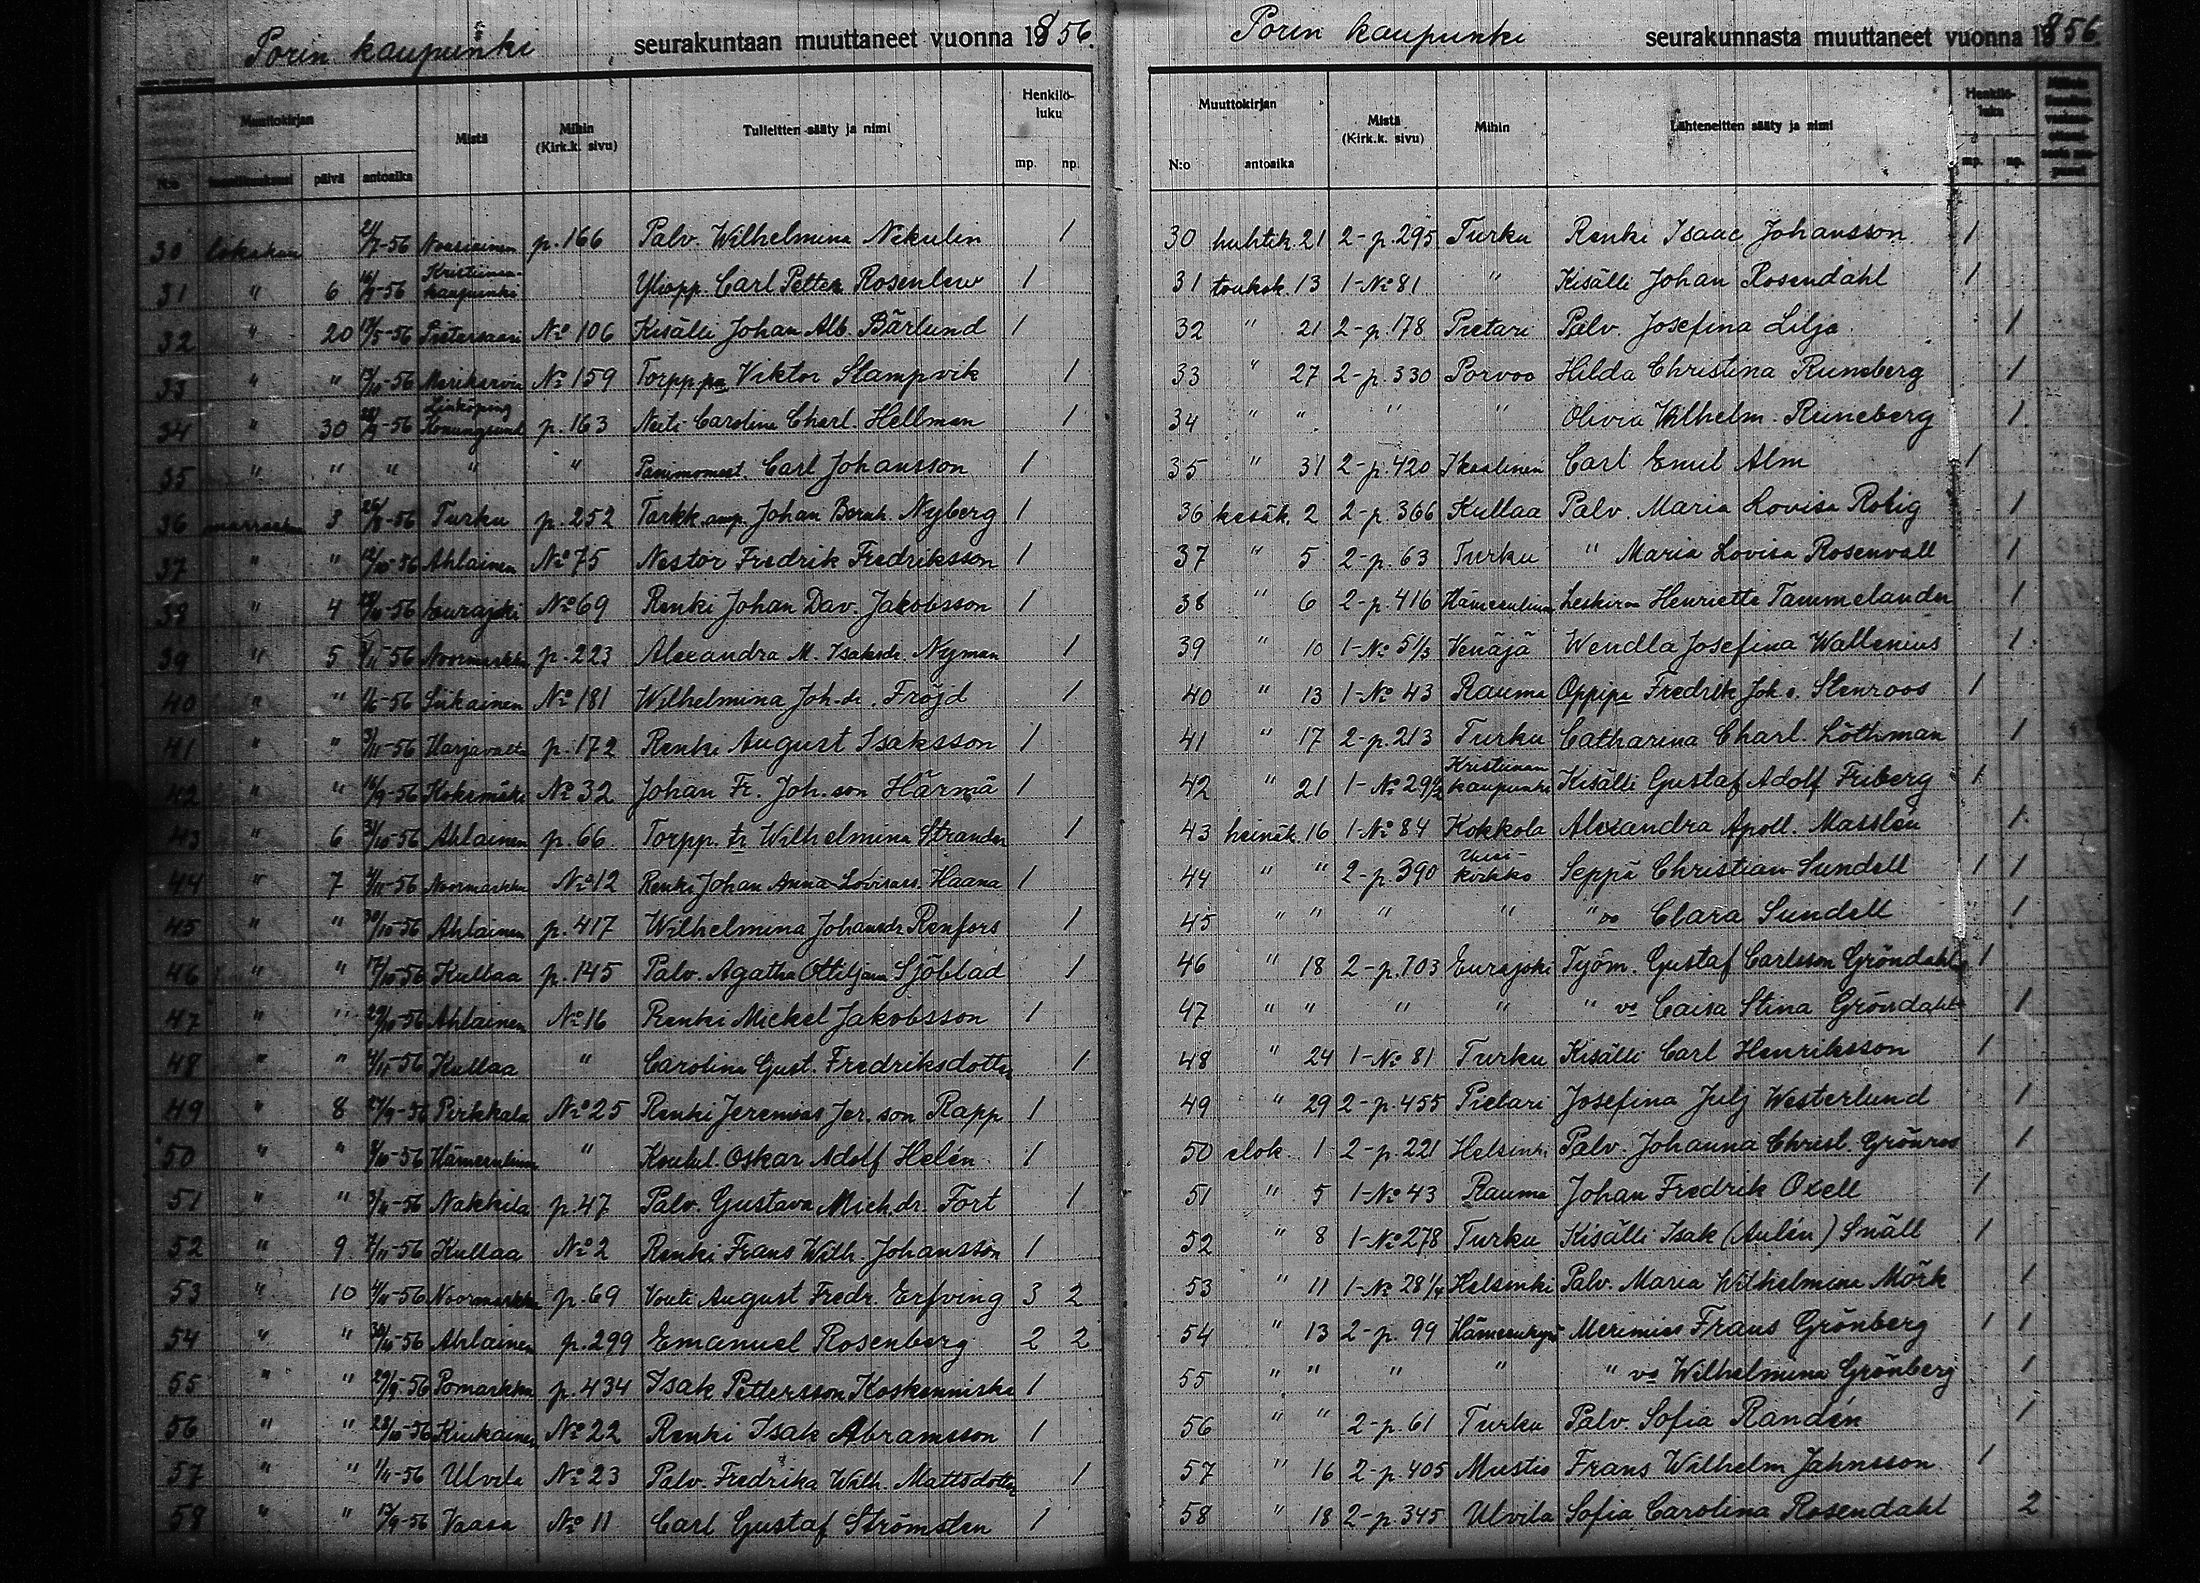 Porin kaupunki seurakuntaan muuttaneet vuonna 1856.
Muuttokirjan Mistä Mihin (Kirk.k. sivu) Tulleitten sääty ja nimi Henkilöluku
N:o päivä antoaika mp. np.
30 lokakuu 2/7-56 Nousiainen p. 166 Palv. Wilhelmina Nikulin 1
31 " 6 16/9-56 Kristiinankaupunki Yliopp. Carl Petter Rosenlew 1
32 " 20 17/5-56 Pietarsaari No 106 Kisälli Johan Alb. Bärlund 1
33 " " 17/10-56 Merikarvia No 159 Torpp.pa Viktor Stampvik 1
34 " 30 -56 Linköping Konungsund p. 163 Neiti Carolina Charl. Hellman 1
35 " " " " " Panimomest. Carl Johansson 1
36 marraskuu 3 26/8-56 Turku p. 252 Tarkk.amp. Johan Bernh. Nyberg 1
37 " " 12/10-56 Ahlainen No 75 Nestor Fredrik Fredriksson 1
38 " 4 -56 Eurajoki No 69 Renki Johan Dav. Jakobsson 1
39 " 5 -56 Noormarkku p. 223 Alexandra M. Isaksdr. Nyman 1
40 " " -56 Siikainen No 181 Wilhelmina Joh.dr. Fröjd 1
41 " " 3/11-56 Harjavalta p. 172 Renki August Isaksson 1
42 " " 16/9-56 Kokemäki No 32 Johan Fr. Joh.son Härmä 1
43 " 6 31/10-56 Ahlainen p. 66 Torpp. tr Wilhelmina Strander 1
44 " 7 -56 Noormarkku No 12 Renki Johan Anna-Lovisas. Haana 1
45 " " 30/10-56 Ahlainen p. 417 Wilhelmina Johansdr Renfors 1
46 " " 17/10-56 Kullaa p. 145 Palv. Agatha Ottiljana Sjöblad 1
47 " " 29/10-56 Ahlainen No 16 Renki Mickel Jakobsson 1
48 " " -56 Kullaa " Carolina Gust. Fredriksdotter 1
49 " 8 27/9-56 Pirkkala No 25 Renki Jeremias Jer.son Rapp 1
50 " " -56 Hämeenlinna " Koulul. Oskar Adolf Helén 1
51 " " -56 Nakkila p. 47 Palv. Gustava Mich.dr. Fort 1
52 " 9 7/11-56 Kullaa No 2 Renki Frans Wilh. Johansson 1
53 " 10 -56 Noormarkku p. 69 Vouti August Fredr. Erfving 3 2
54 " " -56 Ahlainen p. 299 Emanuel Rosenberg 2 2
55 " " 29/9-56 Pomarkku p. 434 Isak Pettersson Koskenniska 1
56 " " 28/10-56 Kiukainen No 22 Renki Isak Abramsson 1
57 " " -56 Ulvila No 23 Palv. Fredrika Wilh. Mattsdotter 1
58 " " 17/9-56 Vaasa No 11 Carl Gustaf Strömsten 1
Porin kaupunki seurakunnasta muuttaneet vuonna 1856.
Muuttokirjan Mistä (Kirk.k. sivu) Mihin Lähteneitten sääty ja nimi Henkilöluku
N:o antoaika mp. np.
30 huhtik. 21 2-p. 295 Turku Renki Isaac Johansson 1
31 toukok. 13 1-No 81 " Kisälli Johan Rosendahl 1
32 " 21 2-p. 178 Pietari Palv. Josefina Lilja 1
33 " 27 2-p. 330 Porvoo Hilda Christina Runeberg 1
34 " " " " Olivia Wilhelm. Runeberg 1
35 " 31 2-p. 420 Ikaalinen Carl Emil Alm 1
36 kesäk. 2 2-p. 366 Kullaa Palv. Maria Lovisa Rotig 1
37 " 5 2-p. 63 Turku " Maria Lovisa Rosenvall 1
38 " 6 2-p. 416 Hämeenlinna Leskirva Henriette Tammelander 1
39 " 10 1-No 51/3 Venäjä Wendla Josefina Wallenius 1
40 " 13 1-No 43 Rauma Oppipa Fredrik Joh.s. Stenroos 1
41 " 17 2-p. 213 Turku Catharina Charl. Löthman 1
42 " 21 1-No 29 1/2 Kristiinankaupunki Kisälli Gustaf Adolf Friberg 1
43 heinäk. 16 1-No 84 Kokkola Alexandra Apoll. Masslén 1
44 " " 2-p. 390 Uusikirkko Seppä Christian Sundell 1 1
45 " " " " " vo Clara Sundell 1
46 " 18 2-p. 703 Eurajoki Työm. Gustaf Carlsson Gröndahl 1
47 " " " " " vo Caisa Stina Gröndahl 1
48 " 24 1-No 81 Turku Kisälli Carl Henriksson 1
49 " 29 2-p. 455 Pietari Josefina Julj Westerlund 1
50 elok. 1 2-p. 221 Helsinki Palv. Johanna Christ. Grönroos 1
51 " 5 1-No 43 Rauma Johan Fredrik Oxell 1
52 " 8 1-No 278 Turku Kisälli Isak (Aulén) Snäll 1
53 " 11 1-No 28 1/4 Helsinki Palv. Maria Wilhelmina Mörk 1
54 " 13 2-p. 99 Hämeenkyrö Merimies Frans Grönberg 1 1
55 " " " " " vo Wilhelmina Grönberg 1
56 " " 2-p. 61 Turku Palv. Sofia Randén 1
57 " 16 2-p. 405 Mustio Frans Wilhelm Jahnsson 1
58 " 18 2-p. 345 Ulvila Sofia Carolina Rosendahl 2